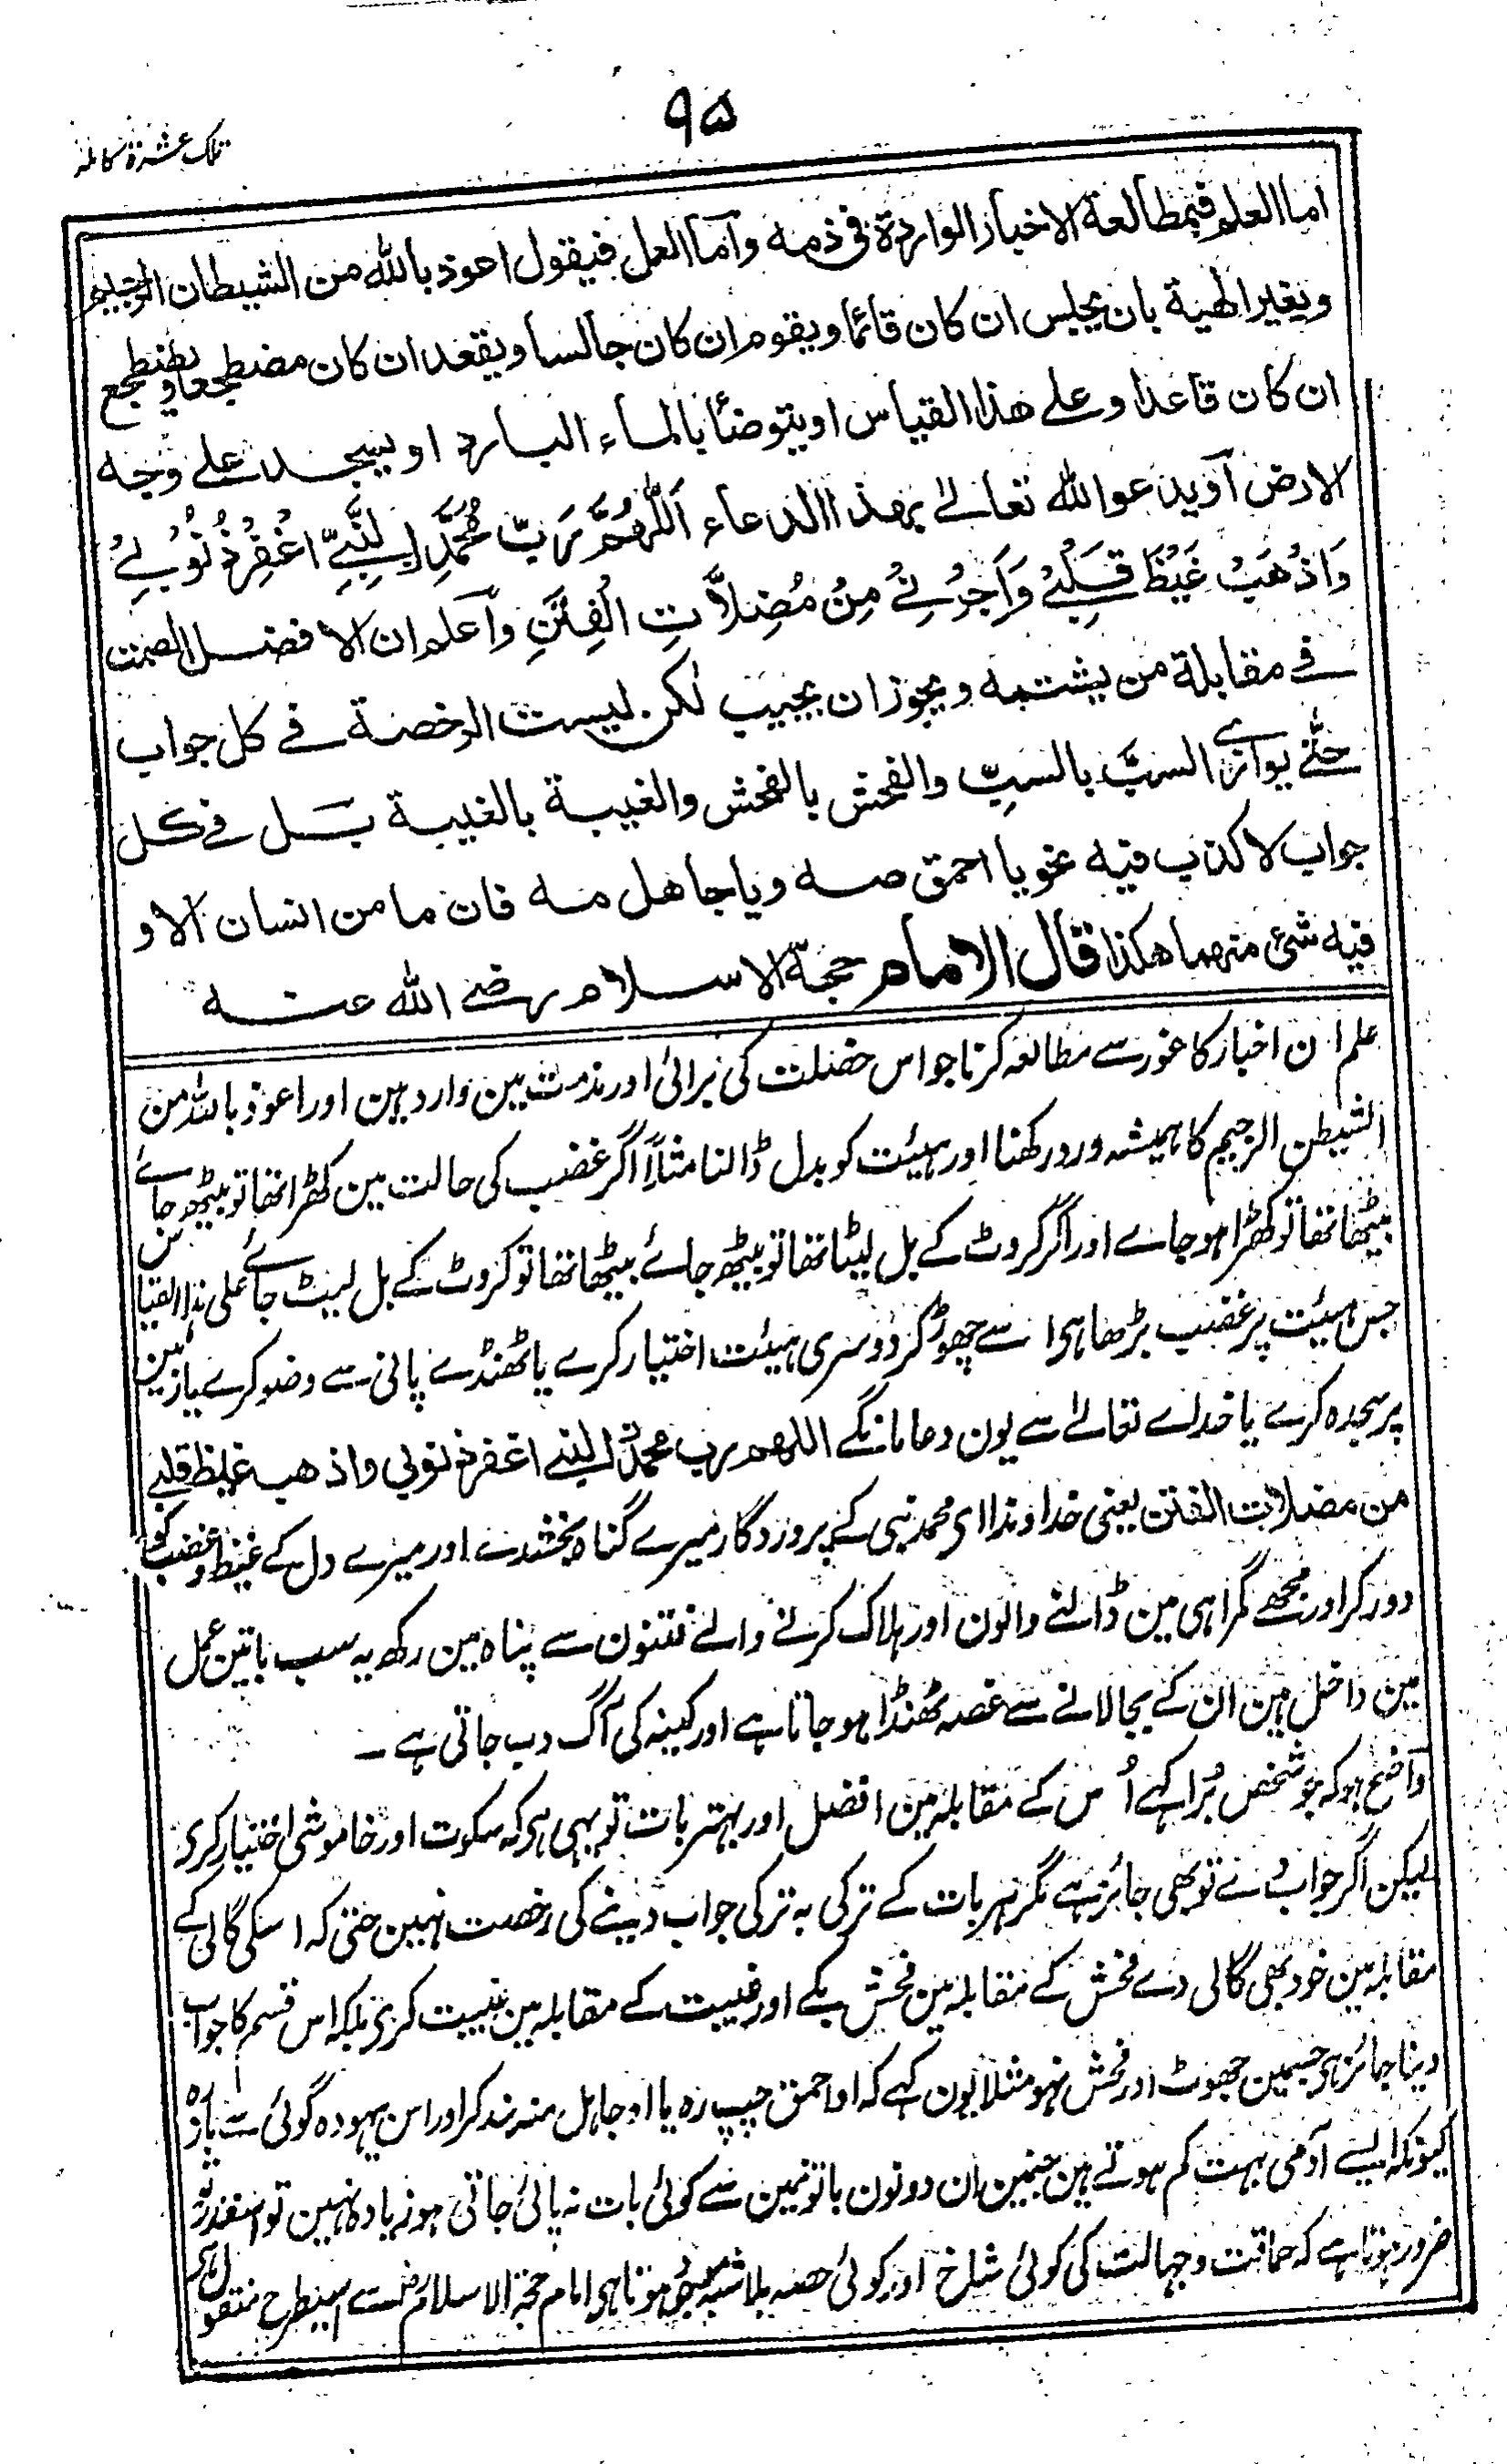 ۹۵
تلک عشرة کاملہ
اما العلم فبمطالعة الاخبار الواردة فی ذمه وآما العمل فیقول اعوذ بالله من الشیطان الرجیم
ویغیر الهیة بان یجلس ان کان قائما ویقوم ان کان جالسا ویقعد ان کان مضطجعا ویضطجع
ان کان قاعدا وعلے هذا القیاس او یتوضأ بالماء البارد او یسجد علے وجه
الارض آو یدعو الله تعالےٰ بهذا الدعاء اَللّٰهُمَّ رَبَّ مُحَمَّدِ اِلنَّبِيِّ اغْفِرْ ذُنُوْبِےْ
وَاَذْهَبْ غَیْظَ قَلْبِےْ وَاَجِرْنِےْ مِنْ مُضِلاَّتِ الْفِتَنِ وآعلم ان الافضل الصمت
فے مقابلة من یشتمه ویجوز ان یجیب لکن لیست الرخصة فے کل جواب
حتّٰے یوازے السبَّ بالسبِّ والفحش بالفحش والغیبة بالغیبة بَل فے کل
جواب لا کذب فیه نحو یا احمق صه ویا جاهل مه فان ما من انسان الا و
فیه شیٔ منهما هکذا قال الامام حجّة الاسلام رضے الله عنه
علم ان اخبار کا غور سے مطالعہ کرنا جو اس خصلت کی برائی اور مذمت مین وارد ہین اور اعوذ باللہ من
الشیطن الرجیم کا ہمیشہ ورد رکھنا اور ہیئت کو بدل ڈالنا مثلًا اگر غضب کی حالت مین کھڑا تھا تو بیٹھ جاے
بیٹھا تھا تو کھڑا ہو جاے اور اگر کروٹ کے بل لیٹا تھا تو بیٹھ جائے بیٹھا تھا تو کروٹ کے بل لیٹ جائے علی ہذا القیاس
جس ہیئت پر غضب بڑھا ہوا سے چھوڑ کر دوسری ہیئت اختیار کرے یا ٹھنڈے پانی سے وضو کرے یا زمین
پر سجدہ کرے یا خداے تعالےٰ سے یون دعا مانگے اللهم رب محمد النبے اغفر ذنوبی واذهب غیظ قلبے
من مضلات الفتن یعنی خداوندا ای محمد نبی کے پروردگار میرے گناہ بخشدے اور میرے دل کے غیظ وغضب کو
دور کر اور مجھے گمراہی مین ڈالنے والون اور ہلاک کرنے والے فتنون سے پناہ مین رکھ یہ سب باتین عمل
مین داخل ہین ان کے بجا لانے سے غصہ ٹھنڈا ہو جاتا ہے اور کینہ کی آگ دب جاتی ہے ۔
واضح ہو کہ جو شخص بُرا کہے اُس کے مقابلہ مین افضل اور بہتر بات تو یہی ہی کہ سکوت اور خاموشی اختیار کری
لیکن اگر جواب دے تو بھی جائز ہے مگر ہر بات کے ترکی بہ ترکی جواب دینے کی رخصت نہین حتی کہ اسکی گالی کے
مقابلہ مین خود بھی گالی دے فحش کے مقابلہ مین فحش بکے اور غیبت کے مقابلہ مین غیبت کری بلکہ اس قسم کا جواب
دینا جائز ہی جسمین جھوٹ اور فحش نہو مثلا یون کہے کہ او احمق چپ رہ یا او جاہل منہ بند کر اور اس بیہودہ گوئی سے باز رہ
کیونکہ ایسے آدمی بہت کم ہوتے ہین جنمین ان دونون باتونمین سے کوئی بات نہ پائی جاتی ہو زیادہ نہین تو اسقدر تو
ضرور ہوتا ہے کہ حماقت و جہالت کی کوئی شاخ اور کوئی حصہ بلا شبہ ہوتا ہی امام حجۃ الاسلام رضـ سے اسیطرح منقول ہی